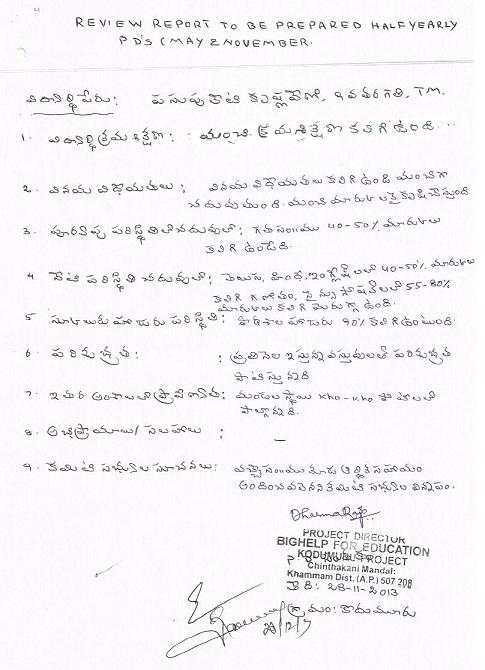 REVIEW REPORT TO BE PREPARED HALF YEARLY
PD'S (MAY & NOVEMBER.
విద్యార్థి పేరు: పసుపులేటి కృష్ణవేణి, 7వ తరగతి, TM.
1. విద్యార్థి క్రమశిక్షణ: మంచి క్రమశిక్షణ కలిగి ఉంది...
2. వినయ విధేయతలు: వినయ విధేయతలు కలిగి ఉండి మంచిగా
చదువుతుంది. మంచి మార్కులకై కృషి చేస్తుంది
3. పూర్వపు పరిస్థితి చదువులో: గత సం॥ము 40-50% మార్కులు
కలిగి ఉండేది.
4 నేటి పరిస్థితి చదువులో: తెలుగు, హిందీ, ఇంగ్లీష్ లలో 40-50% మార్కులు
కలిగి గణితం, సైన్సు సోషల్ లలో 55-80%
మార్కులు కలిగి మెరుగ్గా ఉంది.
5 స్కూలుకు హాజరు పరిస్థితి: పాఠశాల హాజరు 90% కలిగి ఉంటుంది.
6. పరిశుభ్రత: : ప్రతినెల ఇస్తున్న వస్తువులతో పరిశుభ్రత
పాటిస్తున్నది
7. ఇతర అంశాలలో ప్రావీణ్యత: మండల స్థాయి Kho-Kho పోటీలలో
పాల్గొన్నది.
8. అభిప్రాయాలు/ సలహాలు : –
9. కమిటి సభ్యుల సూచనలు: వచ్చే సం॥ము కూడా ఆర్థిక సహాయం
అందించవలెనని కమిటి సభ్యుల విన్నపం.
PROJECT DIRECTOR
BIGHELP FOR EDUCATION
KODUMURU PROJECT
Chinthakani Mandal:
Khammam Dist. (A.P.) 507 208
తేది: 28-11-2013
గ్రామం: కొదుమూరు